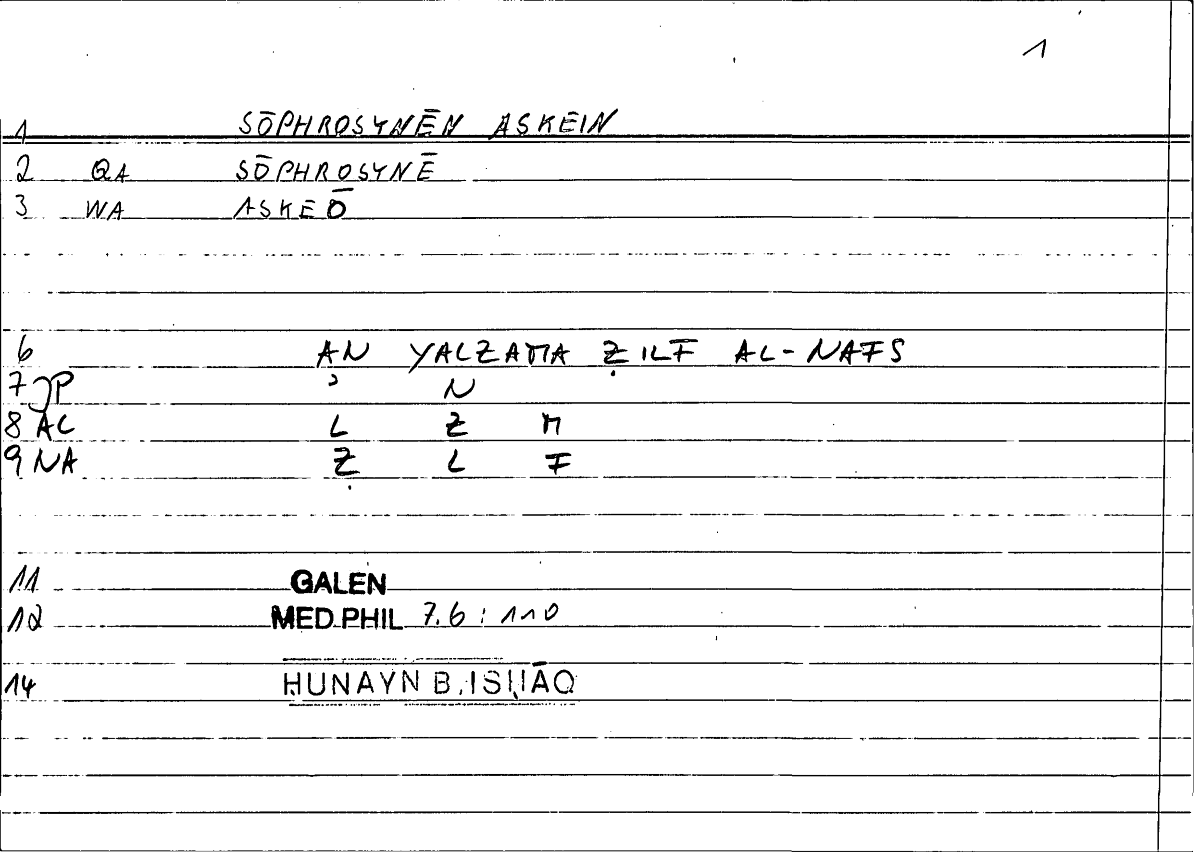 1
1 SŌPHROSYNĒN ASKEIN
2 QA SŌPHROSYNĒ
3 WA ASKEŌ
6 AN YALZAMA ẒILF AL-NAFS
7 JP ʾ N
8 AL L Z M
9 NA Ẓ L F
11 GALEN
12 MED.PHIL 7.6 : 110
14 ḤUNAYN B. ISḤĀQ